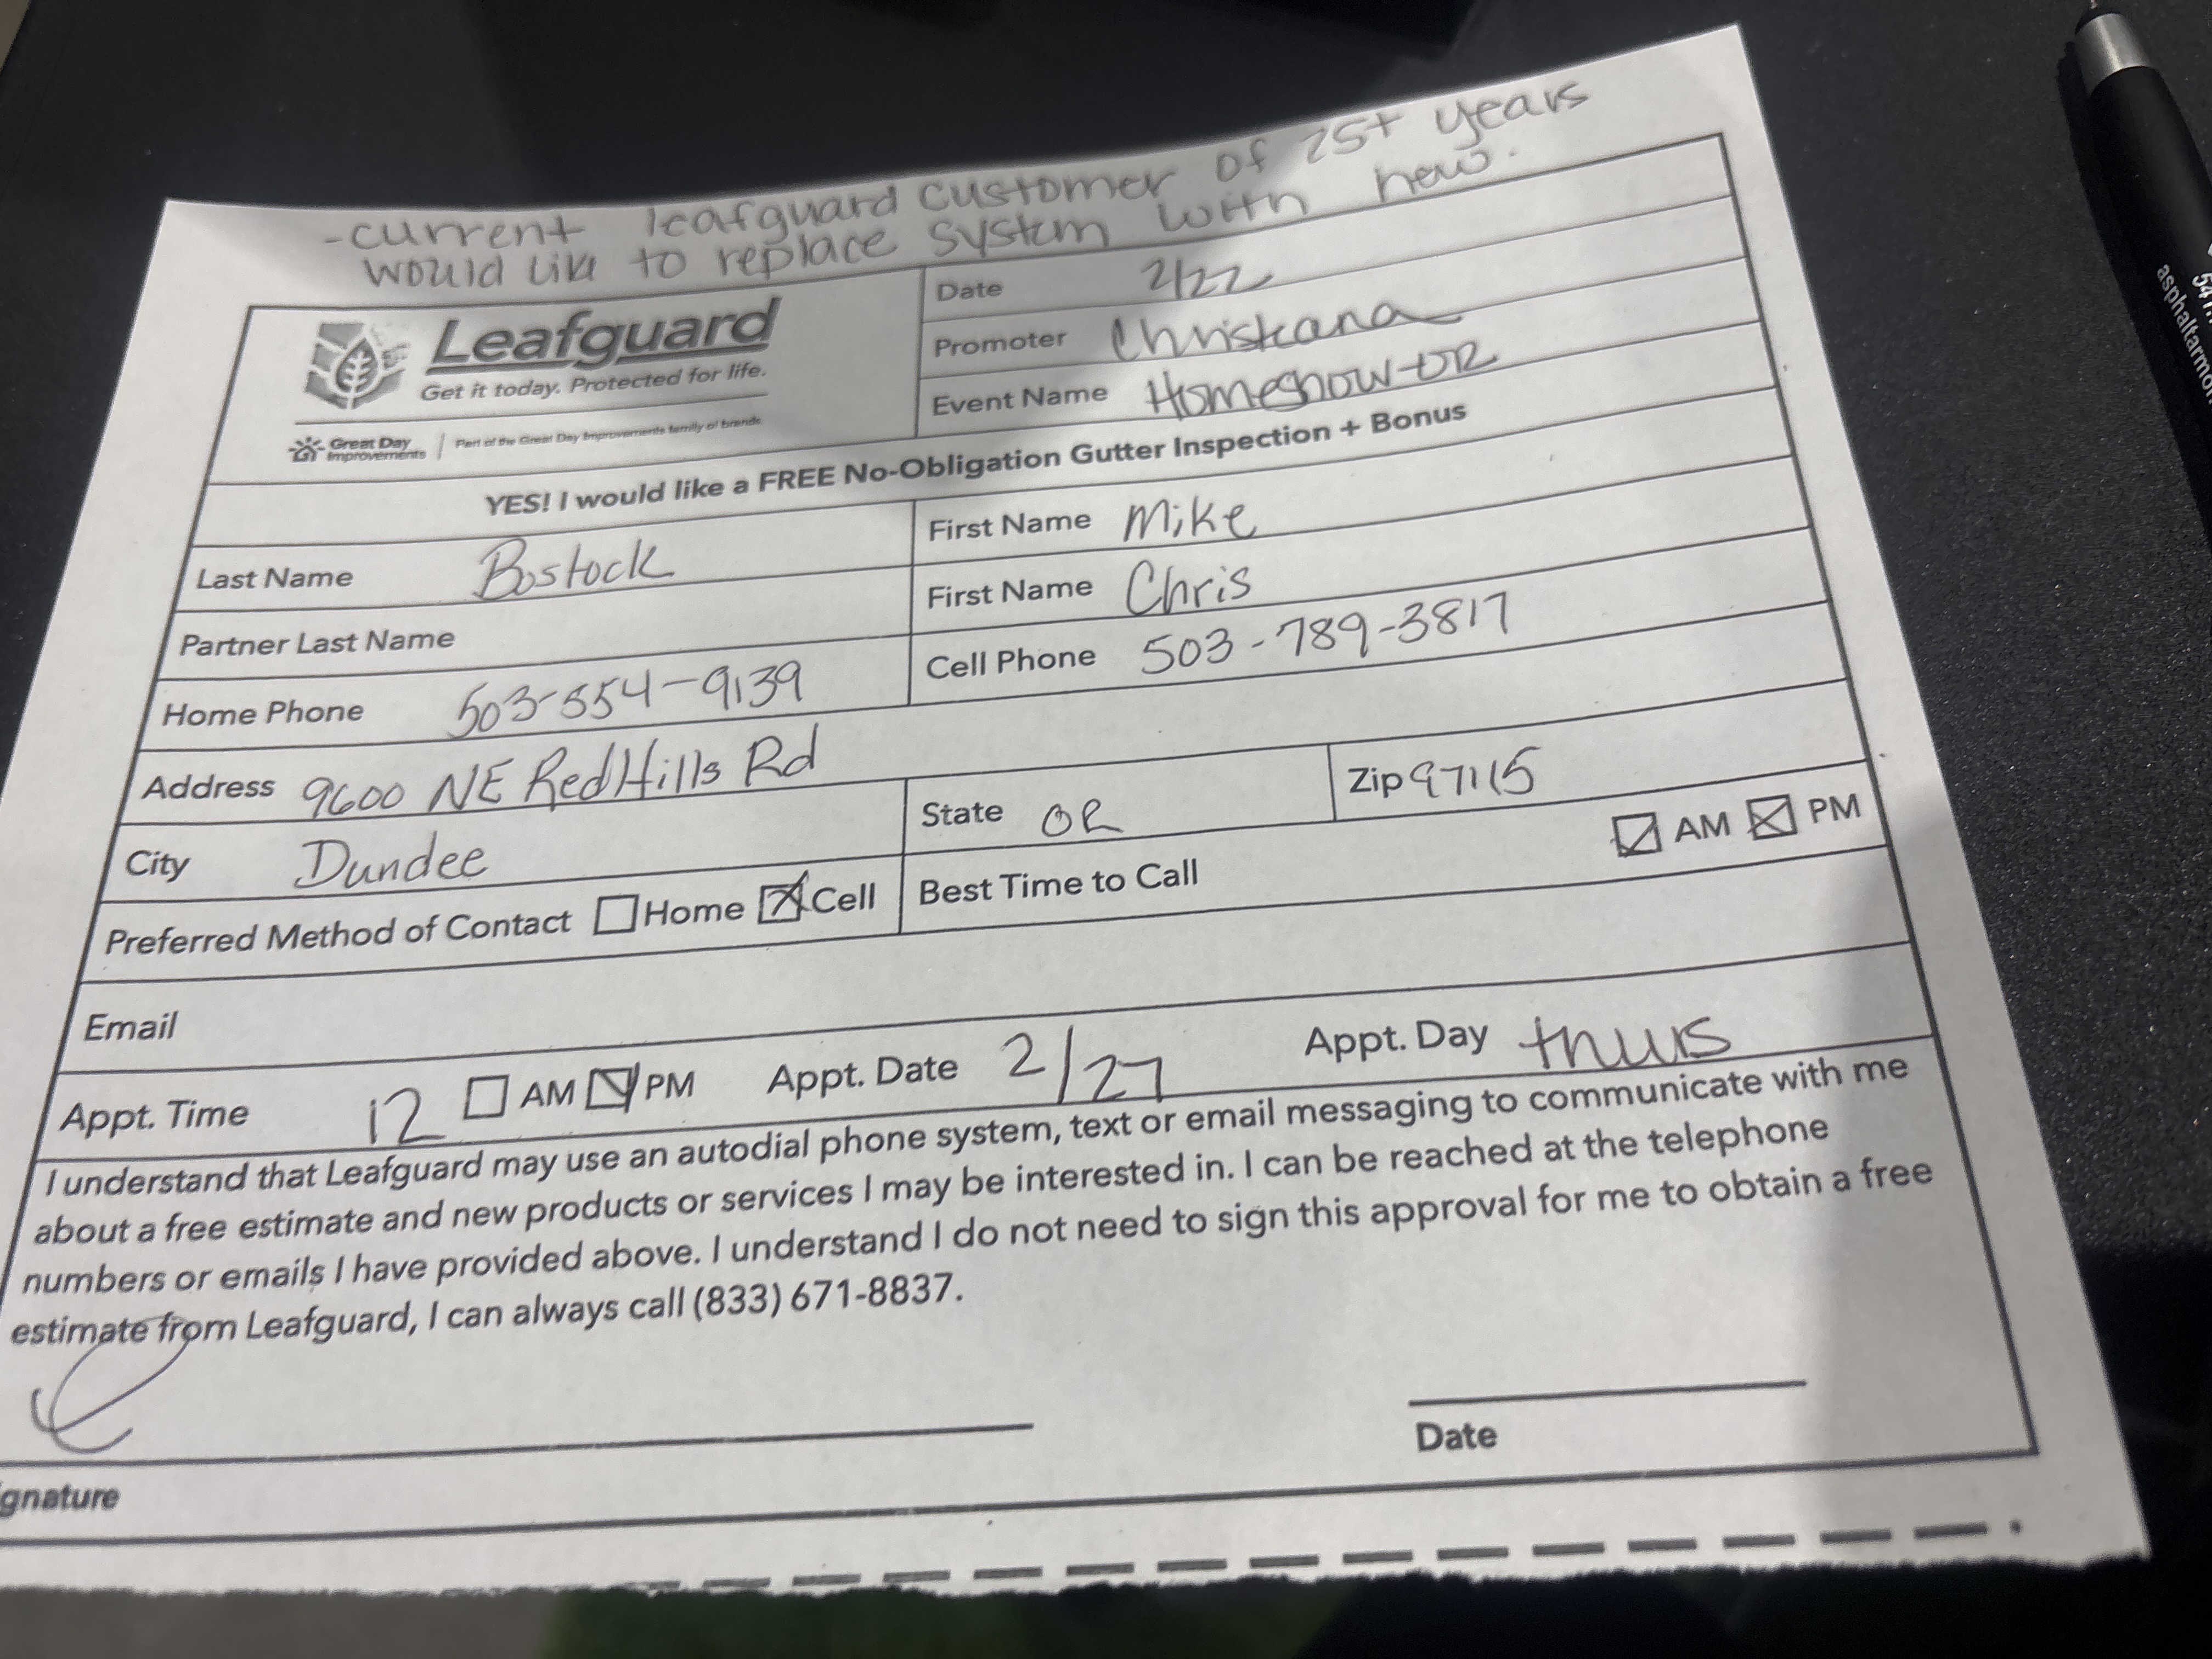 -current leafguard customer of 25+ years
would lik to replace system with new.
Leafguard
Get it today. Protected for life.
Great Day Improvements | Part of the Great Day Improvements family of brands
Date 2/22
Promoter Christiana
Event Name Homeshow-OR
YES! I would like a FREE No-Obligation Gutter Inspection + Bonus
Last Name Bostock First Name Mike
Partner Last Name First Name Chris
Home Phone 503-554-9139 Cell Phone 503-789-3817
Address 9600 NE RedHills Rd
City Dundee State OR Zip 97115
Preferred Method of Contact Home Cell Best Time to Call AM PM
Email
Appt. Time 12 AM PM Appt. Date 2/27 Appt. Day thurs
I understand that Leafguard may use an autodial phone system, text or email messaging to communicate with me
about a free estimate and new products or services I may be interested in. I can be reached at the telephone
numbers or emails I have provided above. I understand I do not need to sign this approval for me to obtain a free
estimate from Leafguard, I can always call (833) 671-8837.
gnature Date
asphaltarmor